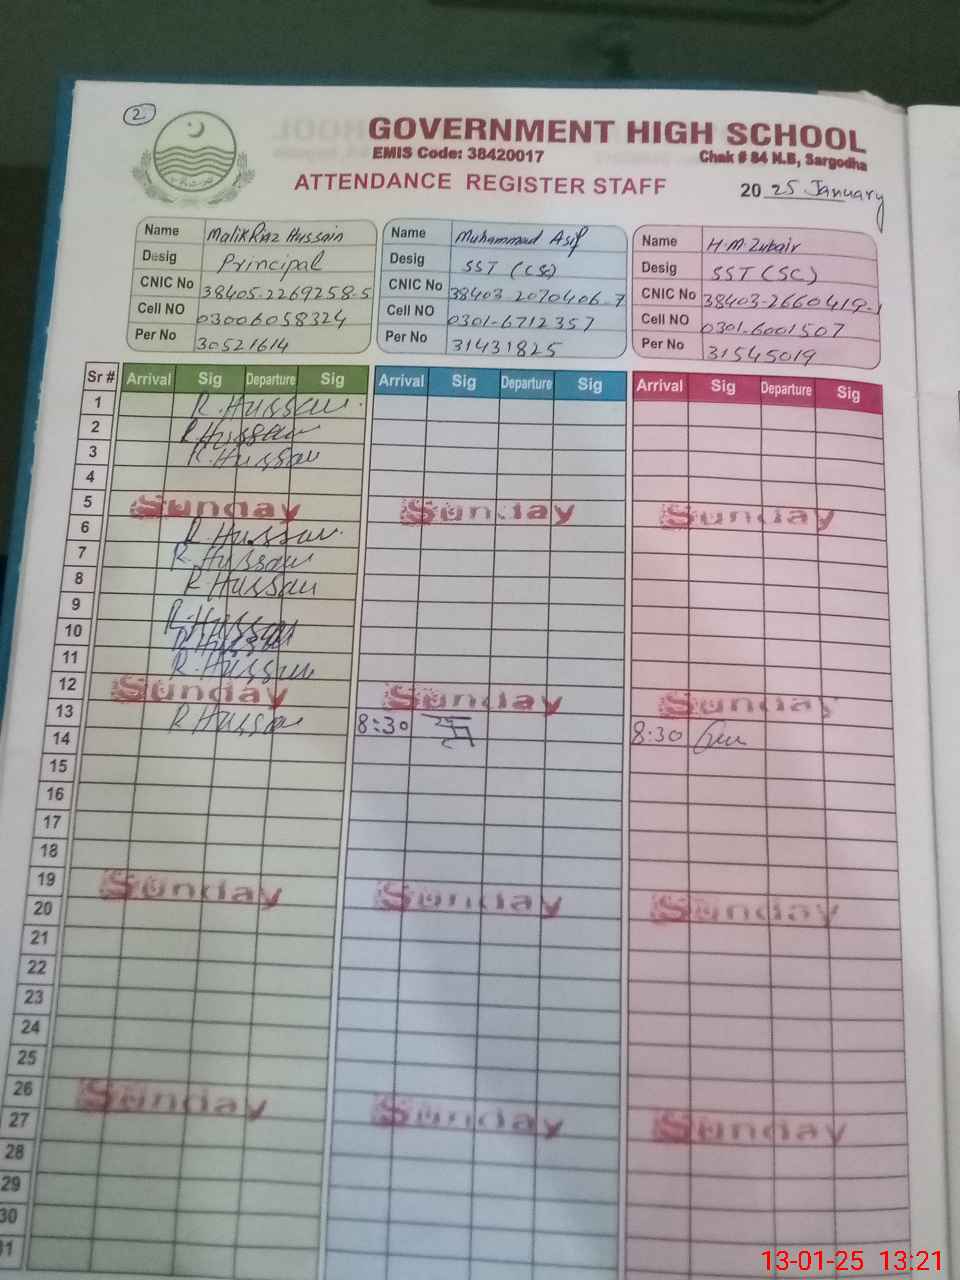 2
GOVERNMENT HIGH SCHOOL
EMIS Code: 38420017 Chak # 84 N.B, Sargodha
ATTENDANCE REGISTER STAFF
20 25 January
Name Malik Riaz Hussain Name Muhammad Asif Name H.M.Zubair
Desig Principal Desig SST (CS) Desig SST (SC)
CNIC No 38405-2269258-5 CNIC No 38403 2070406-7 CNIC No 38403-2660419-1
Cell NO 03006058324 Cell NO 0301-6712357 Cell NO 0301-6001507
Per No 30521614 Per No 31431825 Per No 31545019
Sr # Arrival Sig Departure Sig Arrival Sig Departure Sig Arrival Sig Departure Sig
1 R.Hussain
2 R.Hussain
3 R.Hussain
4
5 Sunday Sunday Sunday
6 R.Hussain
7 R.Hussain
8 R.Hussain
9 R.Hussain
10 R.Hussain
11 R.Hussain
12 Sunday Sunday Sunday
13 R Hussain 8:30 8:30
14
15
16
17
18
19 Sunday Sunday Sunday
20
21
22
23
24
25
26 Sunday Sunday Sunday
27
28
29
30
31
13-01-25 13:21